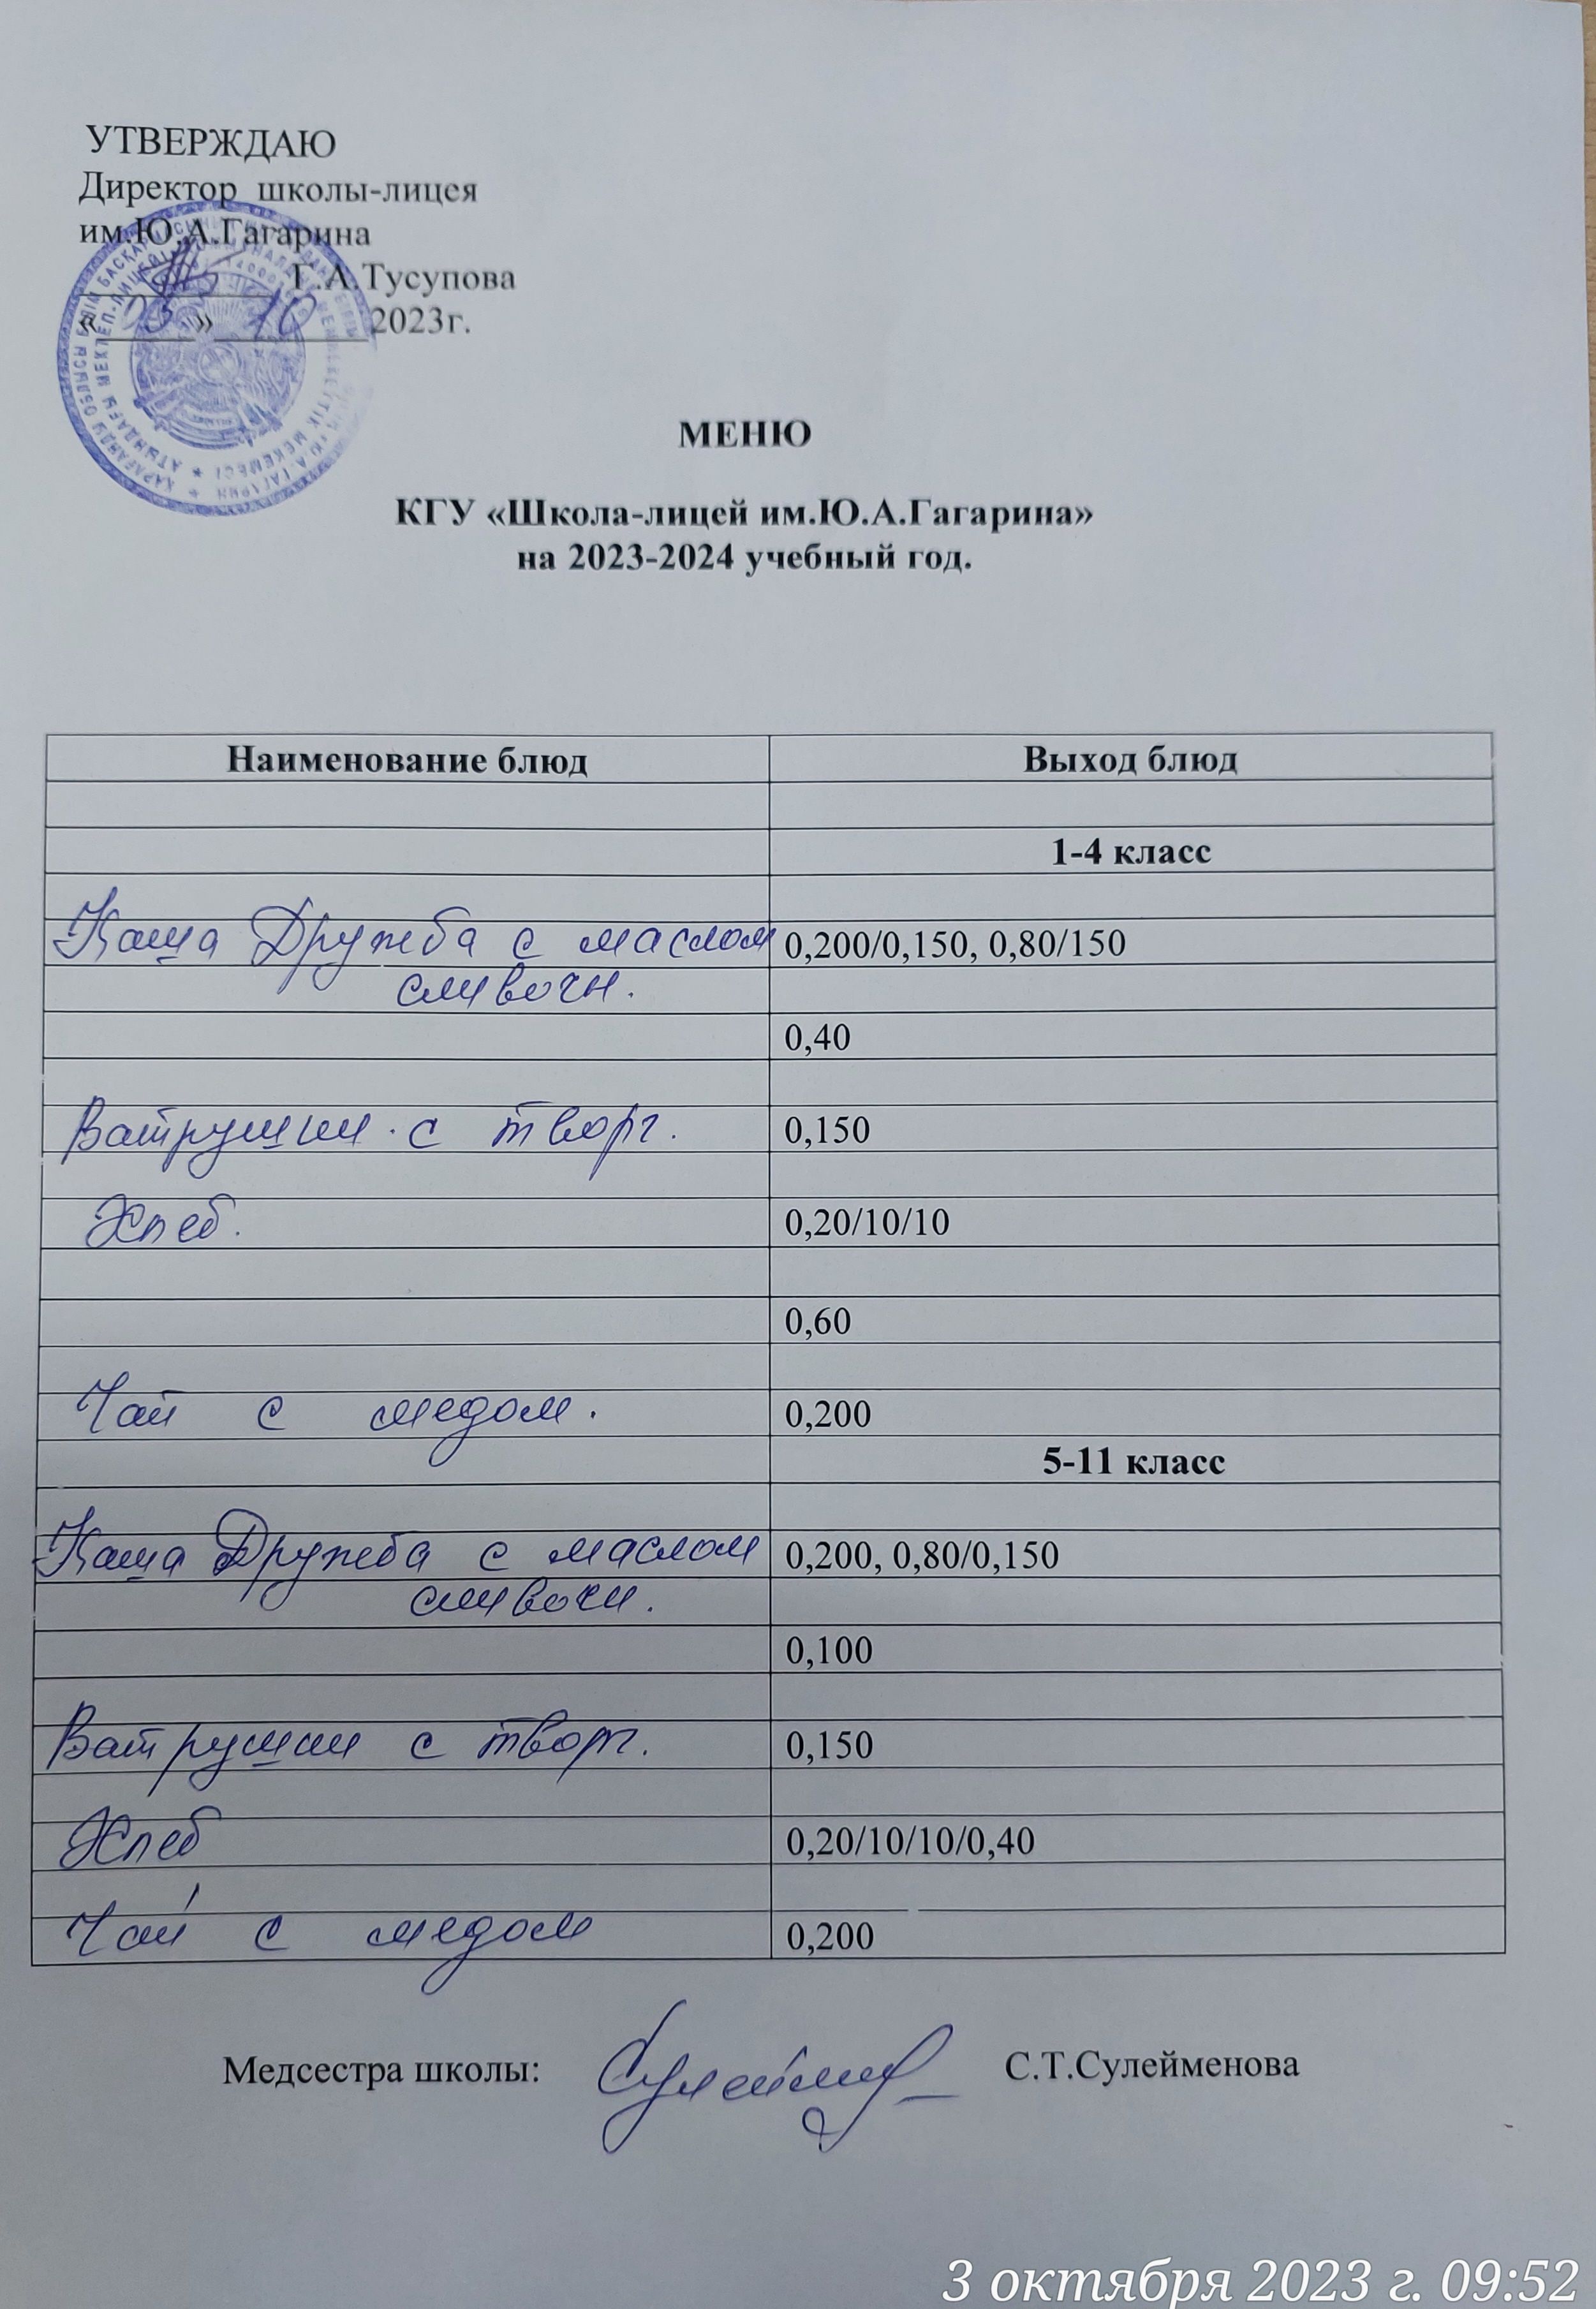 УТВЕРЖДАЮ
Директор школы-лицея
им.Ю.А.Гагарина
Г.А.Тусупова
«03» 10 2023г.
МЕНЮ
КГУ «Школа-лицей им.Ю.А.Гагарина»
на 2023-2024 учебный год.
Наименование блюд Выход блюд
1-4 класс
Каша Дружба с маслом 0,200/0,150, 0,80/150
сливочн.
0,40
Ватрушки с творг. 0,150
Хлеб. 0,20/10/10
0,60
Чай с медом. 0,200
5-11 класс
Каша Дружба с маслом 0,200, 0,80/0,150
сливочн.
0,100
Ватрушки с творг. 0,150
Хлеб 0,20/10/10/0,40
Чай с медом 0,200
Медсестра школы: С.Т.Сулейменова
3 октября 2023 г. 09:52